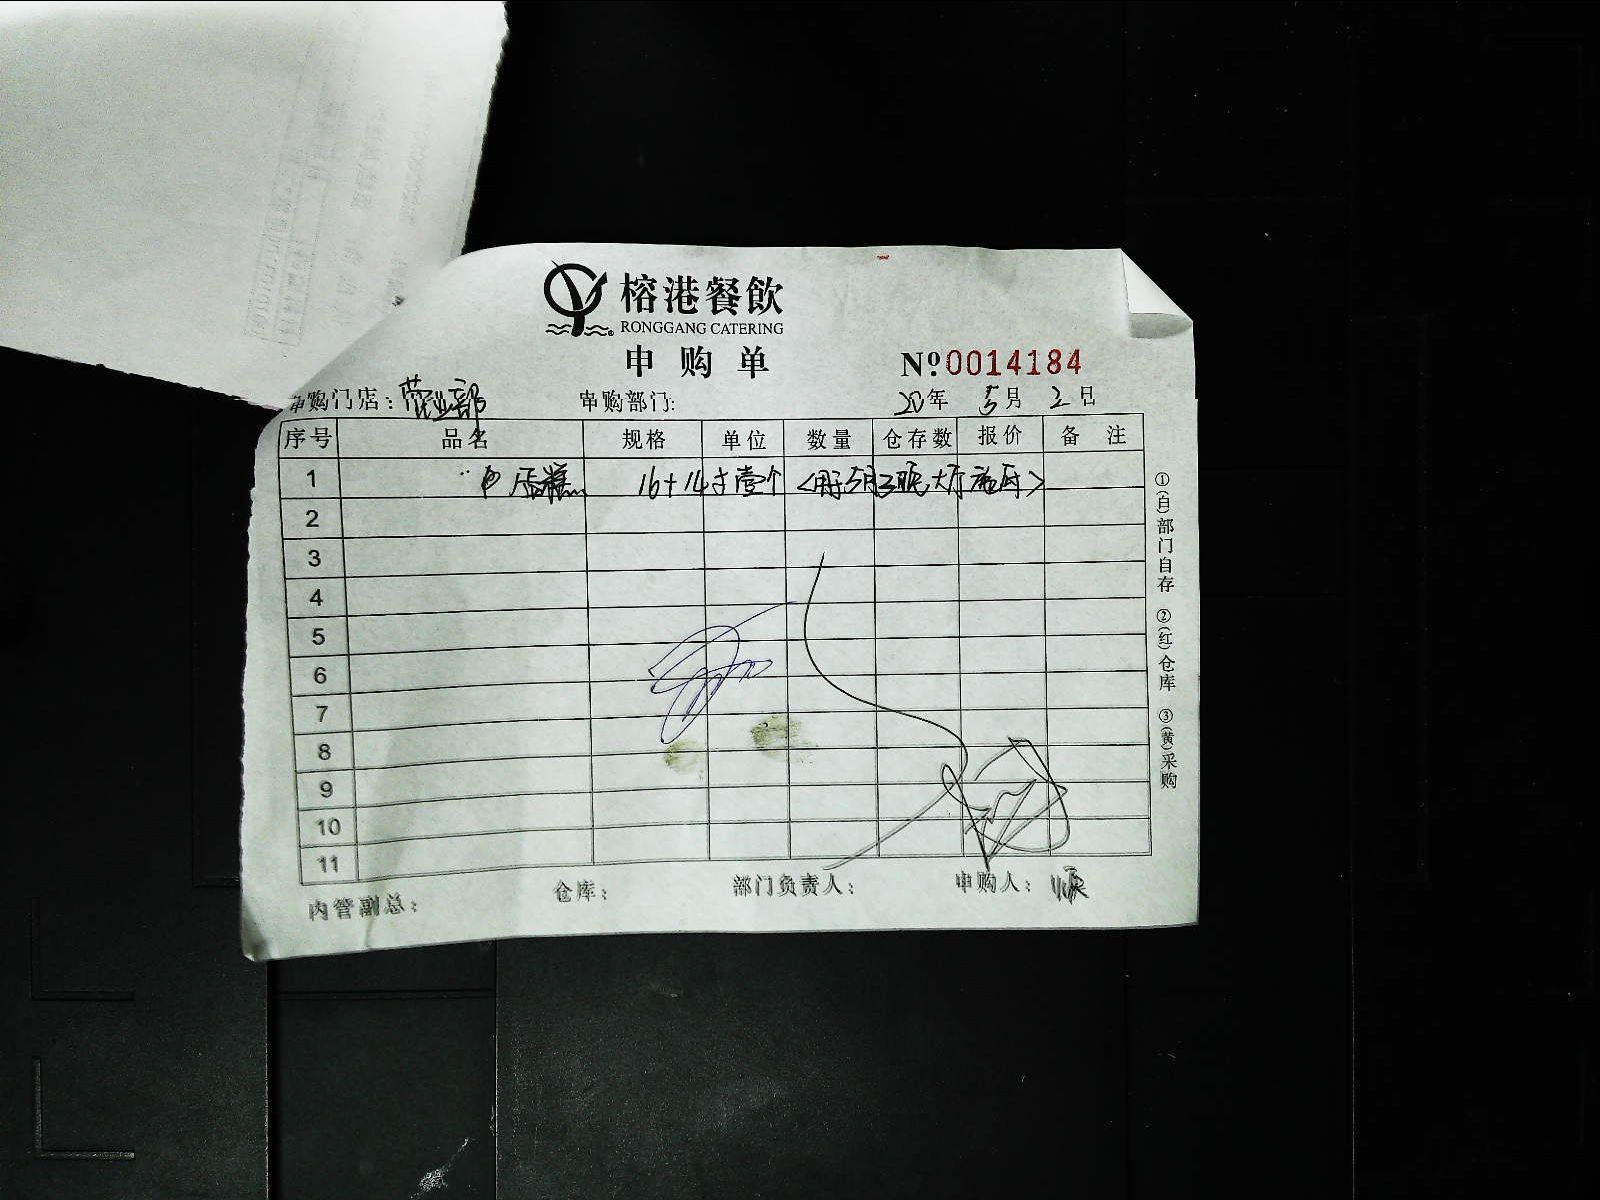 榕港餐飲
RONGGANG CATERING
申购单
Nº.0014184
申购门店：营业部 申购部门: 20年 5月 2日
序号 品名 规格 单位 数量 仓存数 报价 备注
1 蛋糕 16+14寸壹个 <用于5月3 大厅
2
3
4
5
6
7
8
9
10
11
内管副总： 仓库： 部门负责人： 申购人：
①(白)部门自存 ②(红)仓库 ③(黄)采购